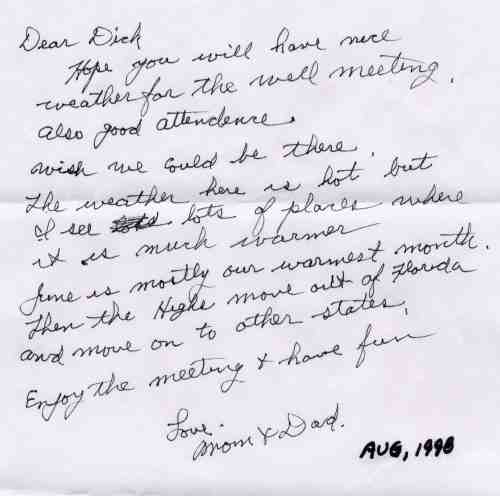 Dear Dick
Hope you will have nice
weather for the well meeting.
Also good attendence.
wish we could be there.
The weather here is hot but
I see lots of places where
it is much warmer
June is mostly our warmest month.
Then the Highs move out of Florida
and move on to other states.
Enjoy the meeting & have fun
Love.
Mom & Dad.
AUG, 1998